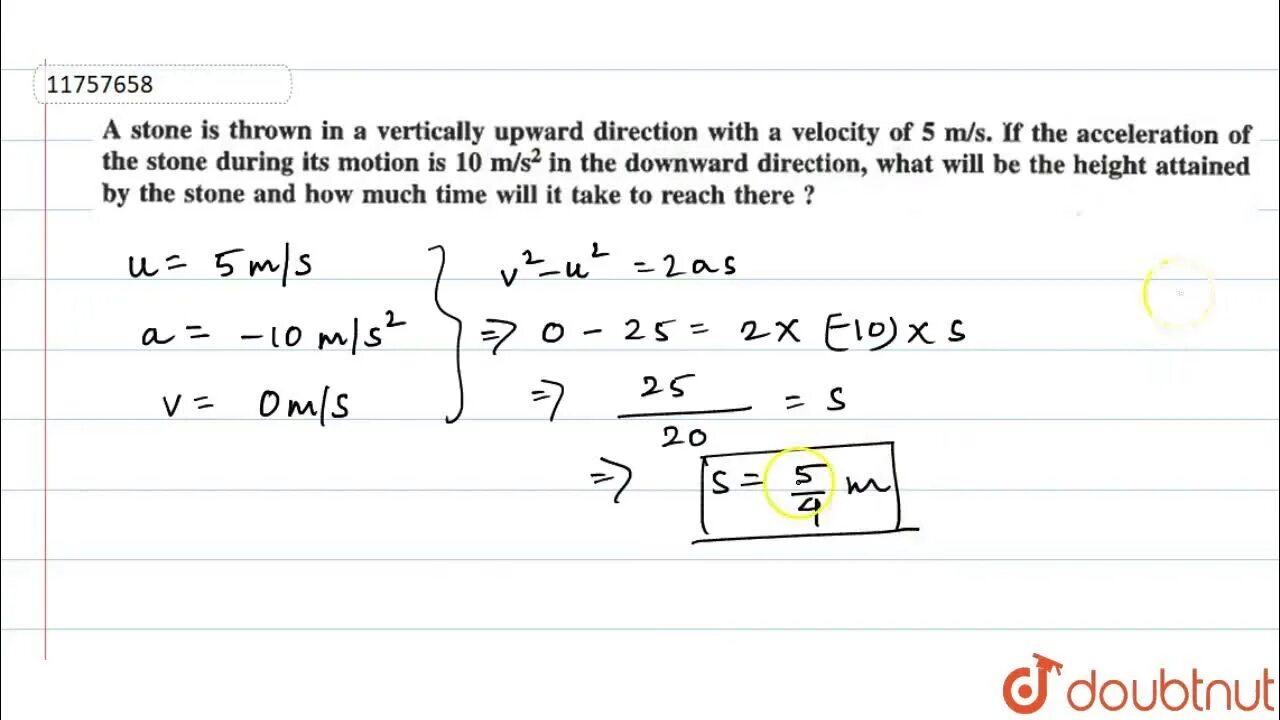 11757658
A stone is thrown in a vertically upward direction with a velocity of 5 m/s. If the acceleration of
the stone during its motion is 10 m/s² in the downward direction, what will be the height attained
by the stone and how much time will it take to reach there ?
u = 5 m/s
v² - u² = 2as
a = -10 m/s²
⇒ 0 - 25 = 2 × (-10) × s
v = 0 m/s
⇒ 25/20 = s
⇒ s = 5/4 m
doubtnut